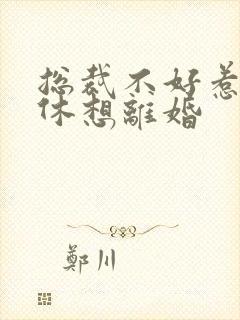 总裁不好惹
休想離婚
鄭川